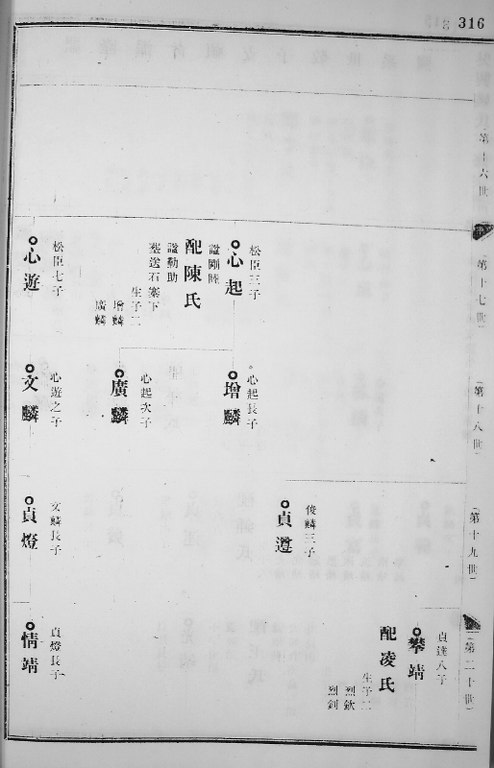 316
第十六世
第十七世
松臣三子
心起
諡剛睦
配陳氏
諡勤助
墓送石寨下
生子二
增麟
廣麟
松臣七子
心遊
第十八世
心起長子
增麟
心起次子
廣麟
心遊之子
文麟
第十九世
俊麟三子
貞遵
文麟長子
貞燈
第二十世
貞達八子
攀靖
配凌氏
生子二
烈欽
烈釗
貞燈長子
情靖